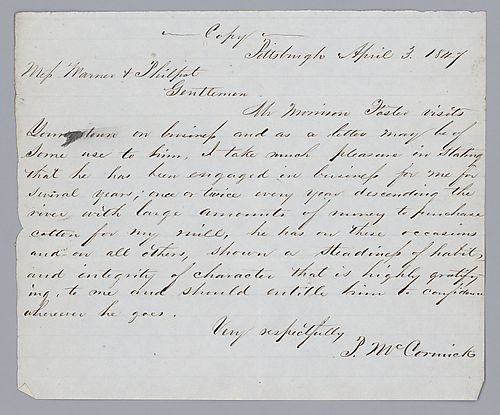 Copy
Pittsburgh April 3. 1847
Mess Warner & Philpot
Gentlemen
Mr Morrison Foster visits
Youngstown on business and as a letter may be of
some use to him, I take much pleasure in stating
that he has been engaged in business for me for
several years; once or twice every year descending the
river with large amounts of money to purchase
cotton for my mill, he has on these occasions
and on all others, shown a steadiness of habits,
and integrity of character that is highly gratify-
ing, to me and should entitle him to confidence
wherever he goes.
Very respectfully
P. McCormick